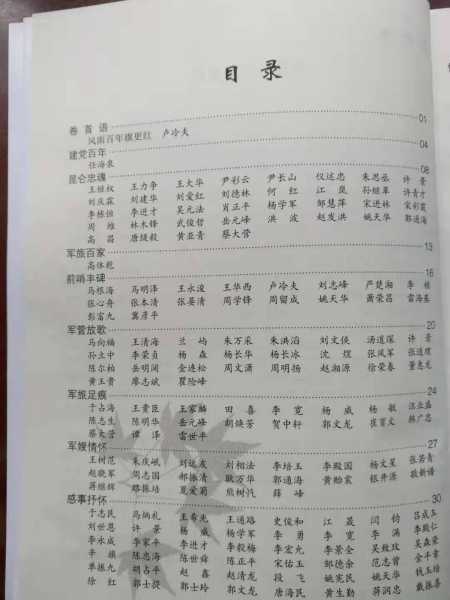 目录
卷首语 01
风雨百年旗更红 卢冷夫
建党百年 04
任海泉
昆仑忠魂 08
王继权 王力争 王大华 尹彩云 尹长山 仪述忠 朱思丞 许景
刘庆霖 刘建华 刘爱红 刘德林 何红 江岚 孙继革 许青才
李栋恒 李进才 吴元法 肖正平 杨学军 邹慧萍 宋进林 宋彩霞
周维 林木锋 武俊哲 岳元峰 洪波 赵发洪 姚天华 郭通海
高昌 唐缇毅 黄亚青 蔡大营
军旅百家 13
高体乾
前哨丰碑 16
马根海 马明泽 王永浚 王华西 卢冷夫 刘志峰 严楚湘 李栋
张心舟 张本清 张晏清 周学锋 周留成 姚天华 萧荣昌 雷海基
彭富九 冀彦平
军营放歌 20
马向楠 王清海 兰屿 朱万采 朱洪滔 刘文侯 汤道深 许景
孙立中 李荣贞 杨森 杨长华 杨长冰 沈煜 张凤军 张道理
陈尔柏 岳明阔 金连松 周文潇 周明扬 赵湘源 徐荣春 董惠龙
黄玉青 廖志斌 瞿险峰
军旅足痕 24
于占海 王贵臣 王家麟 田喜 李宽 杨威 杨敏
陈志生 陈明华 岳元峰 胡焕芳 贺中轩 郭文龙 崔育文 韩广忠
蔡大营 谭泽 雷世平
军嫂情怀 27
王树范 朱庆岷 刘远友 刘相法 李培玉 李殿国 杨文星 张若青
赵晓军 周志国 郝振清 耿万华 郭通海 黄贻裳 银井源
蒋继辉 路振培 夏爱菊 熊树汽 薛峰
感事抒怀 30
于志民 冯炳礼 王希光 王通路 史俊和 江晟 闫钧 吕成玉
刘世恩 许景 杨威 杨学军 李勇 李宽 李满 李殿仁
李永成 李家平 李进才 李毅梅 李宏光 李景全 吴致玫 吴森荣
辛旗 陈志海 陈世舜 陈正平 宋佑玉 邹德余 范志普 金平章
单振东 胡占平 赵鑫 赵清龙 段飞 姚宪民 姚天华 钱玉培
徐红 郭士提 郭士玲 郭文龙 唐海民 黄生勤 蒋润忠 戴振喜